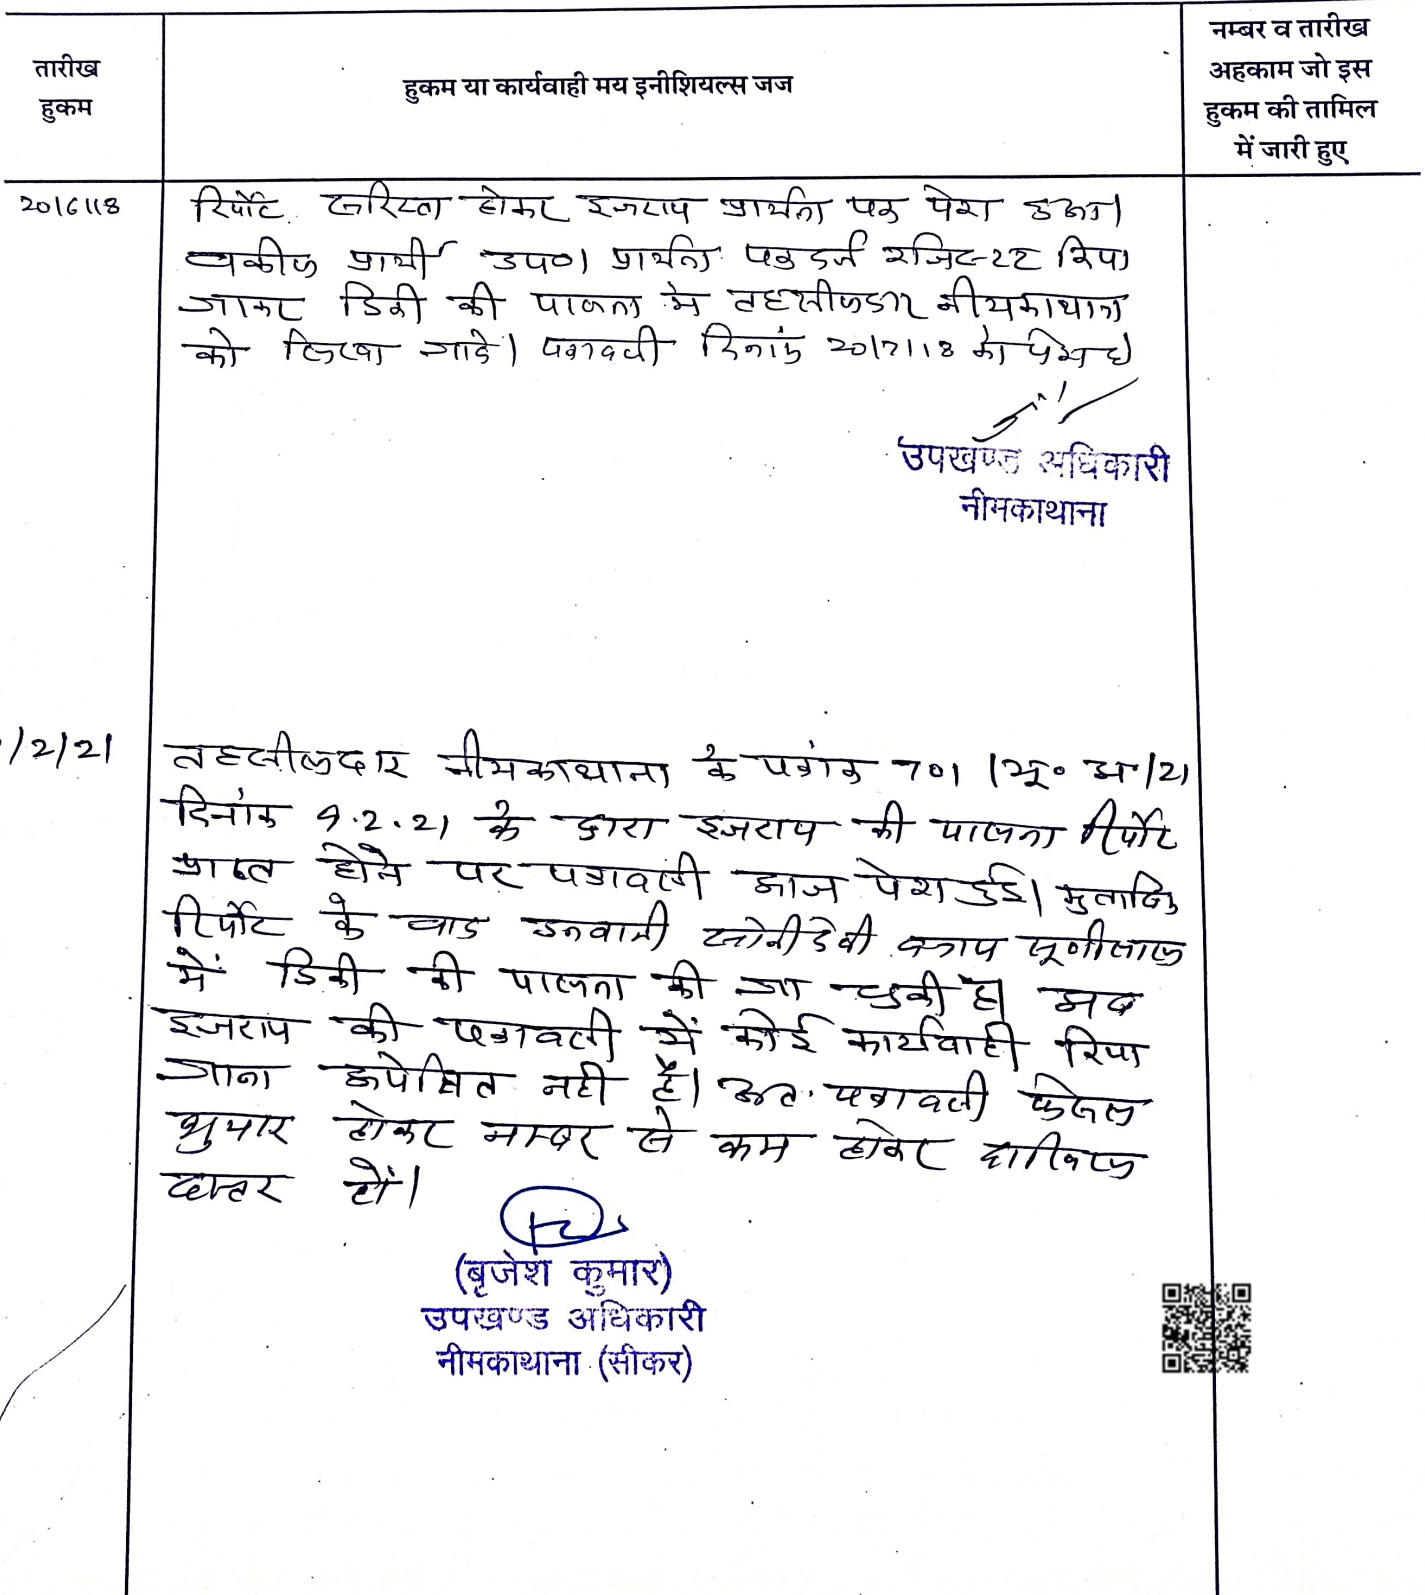 तारीख
हुकम
हुकम या कार्यवाही मय इनीशियल्स जज
नम्बर व तारीख
अहकाम जो इस
हुकम की तामिल
में जारी हुए
20/6/18
रिर्पोट सरिस्ता होकर इजराय प्रार्थना पत्र पेश हुआ।
वकील प्रार्थी उप०। प्रार्थना पत्र दर्ज रजिस्टर किया
जाकर डिक्री की पालना मे तहसीलदार नीमकाथाना
को लिखा जावे। पत्रावली दिनांक 20/7/18 को पेश हो
उपखण्ड अधिकारी
नीमकाथाना
/2/21
तहसीलदार नीमकाथाना के पत्रांक 701 /भू० अ/21
दिनांक 9.2.21 के द्वारा इजराय की पालना रिर्पोट
प्राप्त होने पर पत्रावली आज पेश हुई। मुताबिक
रिर्पोट के वाद उनवानी सोनीदेवी बनाम
में डिक्री की पालना की जा चुकी है। अब
इजराय की पत्रावली में कोई कार्यवाही किया
जाना अपेक्षित नही है। अत. पत्रावली फैसल
शुमार होकर नम्बर से कम होकर दाखिल
दफ्तर हों।
(बृजेश कुमार)
उपखण्ड अधिकारी
नीमकाथाना (सीकर)